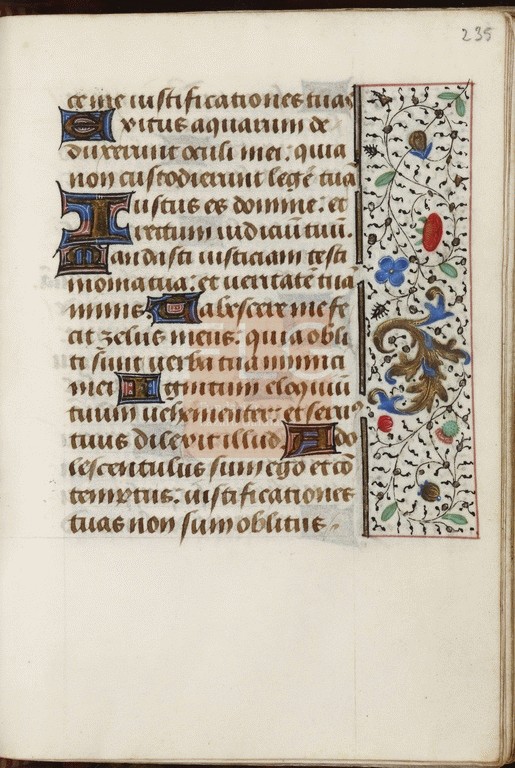 235
ce me iustificationes tuas
Exitus aquarum de
duxerunt oculi mei: quia
non custodierunt legē tuā
Iustus es domine: et
rectum iudiciū tuū.
Mandasti iusticiam testi
monia tua: et veritatē tuā
nimis. Tabescere me fe
cit zelus meus: quia obli
ti sunt verba tua inimici
mei Ignitum eloquiū
tuum vehementer: et seruꝰ
tuus dilexit illud. Ado
lescentulus sum ego et cō
temptus: iustificationes
tuas non sum oblitus.